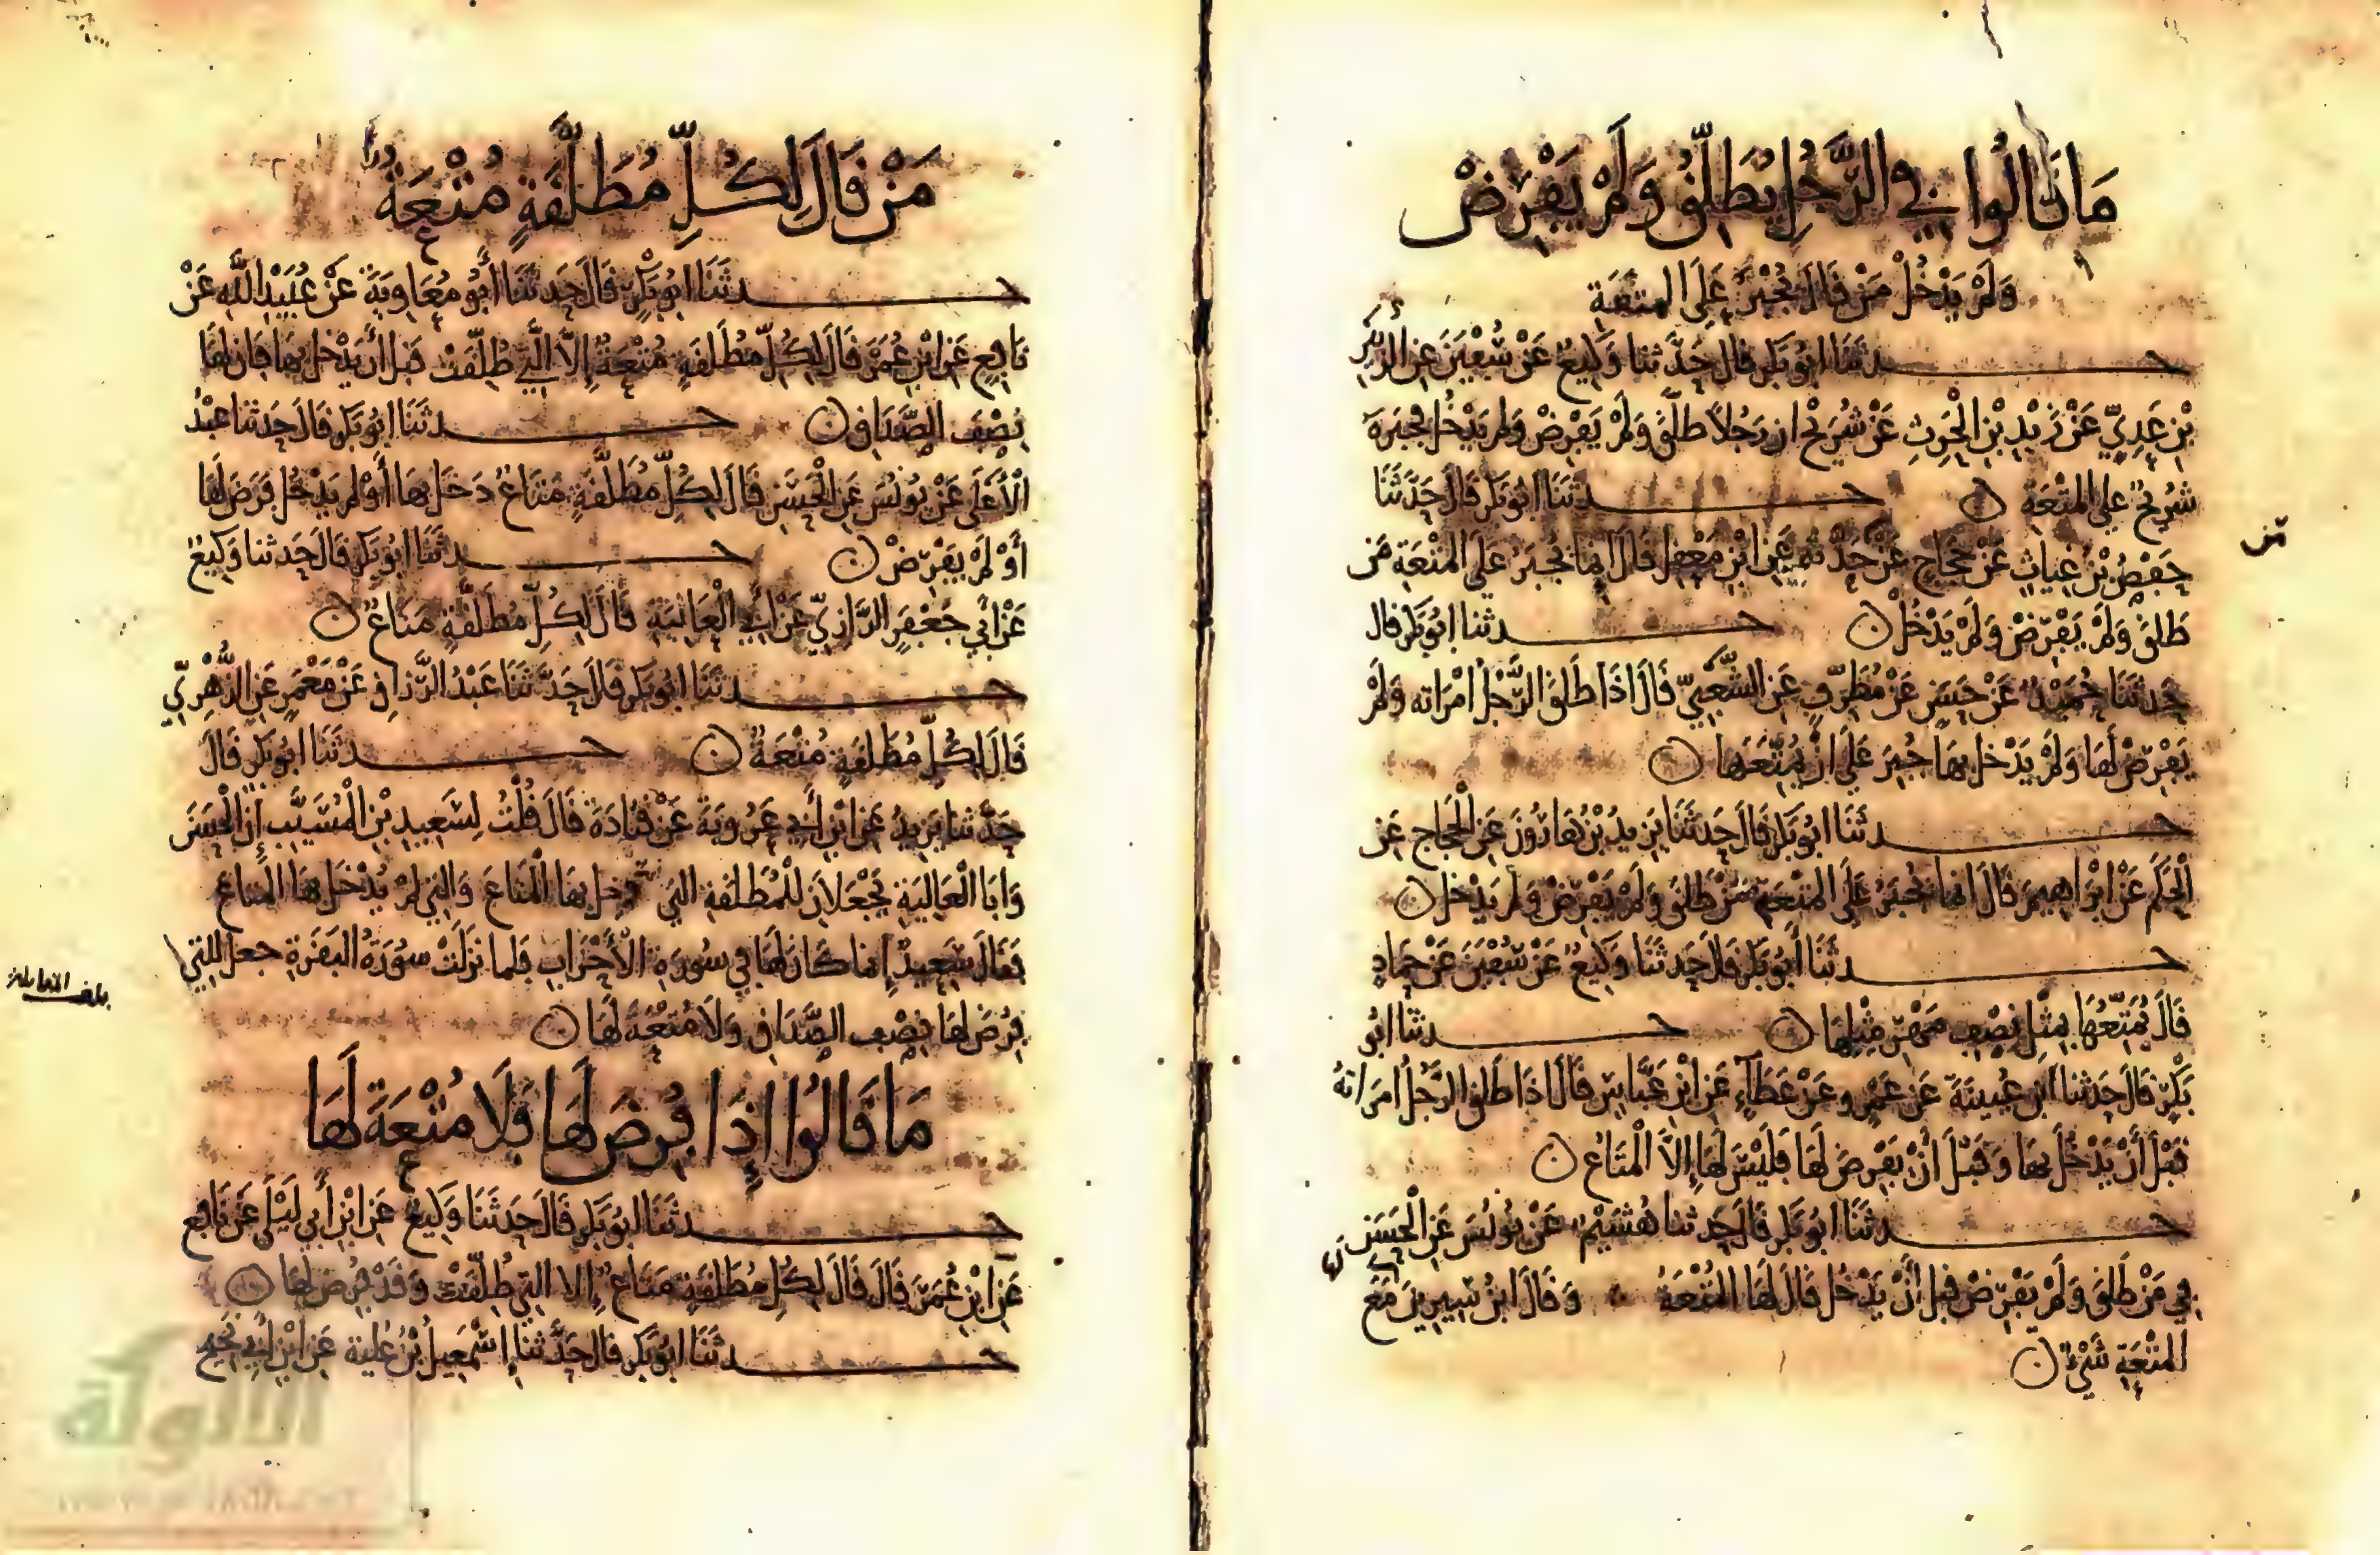 مَا قَالُوا فِي الرَّجُلِ يُطَلِّقُ وَلَمْ يَفْرِضْ
وَلَمْ يَدْخُلْ مَنْ قَالَ يُجْبَرُ عَلَى المتعَةِ
حدثَنَا ابُو بَكرٍ قال حَدَّثنا وَكِيعٌ عَنْ سُفْيَنَ عَنِ الزُّبَيْرِ
بْنِ عَدِيٍّ عَنْ زَيْدِ بْنِ الْحَرِثِ عَنْ شُرَيْحٍ ان رَجُلاً طَلَّقَ وَلَمْ يَفْرِضْ وَلَمْ يَدْخُلْ فجَبَرَهُ
شُرَيْحٌ على المتْعَةِ
حدثَنَا ابُو بَكرٍ قَالَ حَدَّثَنَا
حَفْصُ بْنُ غِيَاثٍ عَنْ حَجَّاجٍ عَنْ حَدَّثَهُ عَنِ ابْنِ مَعْقِلٍ قَالَ انما يُجْبَرُ عَلَى المتْعَةِ مَن
طَلقَ وَلَمْ يَفْرِضْ وَلَمْ يَدْخُلْ
حدثنا ابُو بَكرٍ قال
حَدثَنَا حُمَيْدٌ عَنْ حَسَنٍ عَنْ مُطَرِّفٍ عَنِ الشَّعْبِيِّ قَالَ اذَا طَلقَ الرَّجُلُ امْرَاته وَلَمْ
يَفْرِضْ لَهَا وَلَمْ يَدْخل بهَا جُبِرَ عَلَى انْ يُمَتِّعَهَا
حدثَنَا ابُو بَكرٍ قَالَ حَدثَنَا يَزِيدُ بْنُ هَارُونَ عَنِ الْحَجَّاجِ عَنِ
الْحَكَمِ عَنْ ابْرَاهِيمَ قَالَ انما يُجْبَرُ عَلَى المتْعَةِ مَنْ طَلقَ وَلَمْ يَفْرِضْ وَلَمْ يَدْخل
حدثَنَا أَبُو بَكرٍ قَالَ حَدثَنَا وَكِيعٌ عَنْ سُفْيَنَ عَنْ حَمادٍ
قَالَ يُمَتِّعُهَا بِمِثْلِ نِصْفِ مَهْرِ مِثْلِهَا
حدثَنَا ابُو
بَكْرٍ قَالَ حَدثنا ابْنُ عُيَيْنَةَ عَنْ عَمْرٍو عَنْ عَطَآءٍ عَنِ ابْنِ عَبَّاسٍ قَالَ اذَا طَلقَ الرَّجُلُ امرَاتهُ
قَبْلَ أَنْ يَدْخُلَ بهَا وَقَبْلَ أَنْ يَفْرِضَ لَهَا فَلَيْسَ لَهَا إِلاَّ الْمَتَاعُ
حدثَنَا ابُو بَكرٍ قَالَ حَدثنا هُشَيْمٌ عَنْ يُونُسَ عَنِ الْحَسَنِ
فِي مَنْ طَلقَ وَلَمْ يَفْرِضْ قبل أَنْ يَدْخُلَ قَالَ لَهَا الْمُتْعَةُ وَقَالَ ابْنُ سِيرِينَ مَعَ
المتْعَةِ شَيْءٌ
مَنْ قَالَ لِكُلِّ مُطَلَّقَةٍ مُتْعَةٌ
حدثَنَا ابُو بَكْرٍ قَالَ حَدثَنَا أَبُو مُعَاوِيَةَ عَنْ عُبَيْدِ اللَّهِ عَنْ
نَافِعٍ عَنِ ابْنِ عُمَرَ قَالَ لِكُلِّ مُطَلقَةٍ مُتْعَةٌ إِلاَّ الَّتِي طُلِّقَتْ قَبلَ أَنْ يَدْخلَ بهَا فَان لهَا
نِصْف الصَّدَاقِ
حدثَنَا ابُو بَكرٍ قَالَ حَدثنا عَبْدُ
الْأَعْلَى عَنْ يُونُسَ عَنِ الْحَسَنِ قَالَ لِكُلِّ مُطَلَّقَةٍ مَتَاعٌ دَخلَ بهَا أَوْ لَمْ يَدْخُلْ فَرَضَ لَهَا
أَوْ لَمْ يَفْرِضْ
حدثَنَا ابُو بَكرٍ قَالَ حَدثنا وَكِيعٌ
عَنْ أَبِي جَعْفَرٍ الرَّازِيِّ عَنْ أَبِي الْعَالِيَةِ قَالَ لِكُلِّ مُطَلَّقَةٍ مَتَاعٌ
حدثَنَا ابُو بَكرٍ قَالَ حَدَّثَنَا عَبْدُ الرَّزاقِ عَنْ مَعْمَرٍ عَنِ الزُّهْرِيِّ
قَالَ لِكُلِّ مُطَلقَةٍ مُتْعَةٌ
حدثَنَا ابُو بَكرٍ قَالَ
حَدَّثنا يَزِيدُ عَنِ ابْنِ أَبِي عَرُوبَةَ عَنْ قَتَادَةَ قَالَ قُلْتُ لِسَعِيدِ بْنِ الْمُسَيَّبِ إِنَّ الْحَسَنَ
وَابَا الْعَالِيَةِ يَجْعَلَانِ لِلْمُطَلقَةِ التي دخل بهَا الْمَتَاعَ وَالتِي لَمْ يُدْخَل بهَا الْمَتَاعَ
فَقَالَ سَعِيدٌ إِنما كَانَ لَهَا فِي سُورَةِ الْأَحْزَابِ فَلما نَزَلَتْ سُورَةُ الْبَقَرَةِ جعل للتي
فُرِضَ لَهَا نِصْف الصَّدَاقِ وَلَا مُتْعَةَ لَهَا
بلغت المقابلة
مَا قَالُوا إِذَا فُرِضَ لَهَا فَلَا مُتْعَةَ لَهَا
حدثَنَا ابُو بَكرٍ قَالَ حَدثَنَا وَكِيعٌ عَنِ ابْنِ أَبِي لَيْلَى عَنْ نَافِعٍ
عَنِ ابْنِ عُمَرَ قَالَ قَالَ لِكُلِّ مُطَلقَةٍ مَتَاعٌ إِلا التِي طُلِّقَتْ وَقَدْ فُرِضَ لهَا
حدثَنَا ابُو بَكرٍ قَالَ حَدَّثنا إِسْمَعِيلُ بْنُ عُلَيةَ عَنِ ابْنِ أَبِي نَجِيحٍ
الألوكة